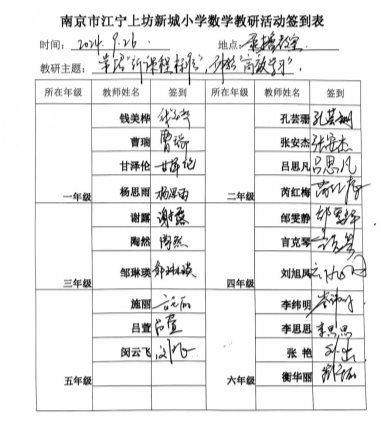 南京市江宁上坊新城小学数学教研活动签到表
时间：2024.9.26 地点：录播教室
教研主题：
所在年级 教师姓名 签到 所在年级 教师姓名 签到
钱美桦 孔芸珊 孔芸珊
曹瑞 曹瑞 张安杰 张安杰
甘泽伦 甘泽伦 吕思凡 吕思凡
一年级 杨思雨 杨思雨 二年级 芮红梅 芮红梅
谢露 谢露 邰雯静 邰雯静
陶然 陶然 言克琴
三年级 邹琳瑛 邹琳瑛 四年级 刘旭凤
施丽 李纬明
吕萱 吕萱 李思思 李思思
闵云飞 张艳
五年级 六年级 衡华丽